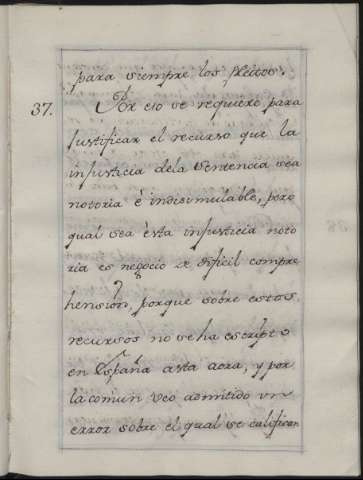 para siempre los pleitos.
37. Por eso se requiere para
justificar el recurso que la
injusticia dela sentencia sea
notoria è indisimulable, pero
qual sea èsta injusticia noto
ria es negocio de dificil compre
hension, porque sobre estos
recursos no se ha escripto
en España asta aora, y por
lo comun veo admitido un
error sobre el qual se califican